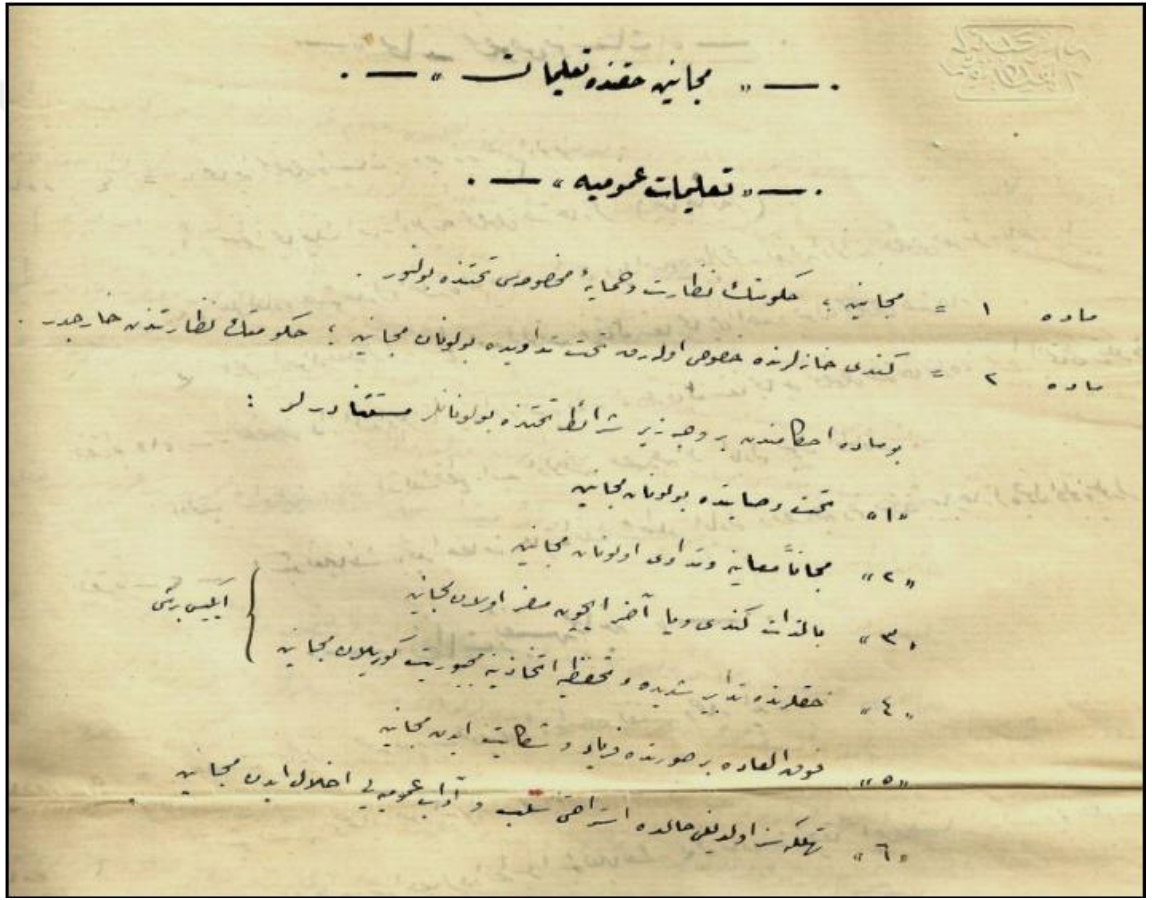 — « مجانین حقنده تعلیمات » —
— « تعلیمات عمومیه » —
ماده ١ = مجانین ؛ حکومتك نظارت و حمایهٔ مخصوصی تحتنده بولنور .
ماده ٢ = کندی خانه‌لرنده خصوصی اوله‌رق تحت تداویده بولونان مجانین ؛ حکومتك نظارتندن خارجدر .
بو ماده احکامندن بر وجه زیر شرائط تحتنده بولونانلر مستثنادرلر :
«١» تحت وصایتده بولونان مجانین
«٢» مجاناً معاینه و تداوی اولونان مجانین
«٣» بالذات کندی ویا آخر ایچون مضر اولان مجانین
«٤» حقلرنده تدابیر شدیده و تحفظیه اتخاذینه مجبوریت کوریلان مجانین
ایکیسی بر
«٥» فوق العاده بر صورتده فریاد و شکایت ایدن مجانین
«٦» تهلکه‌سز اولدیغی حالده استراحتی سلب و آداب عمومیه‌یی اخلال ایدن مجانین